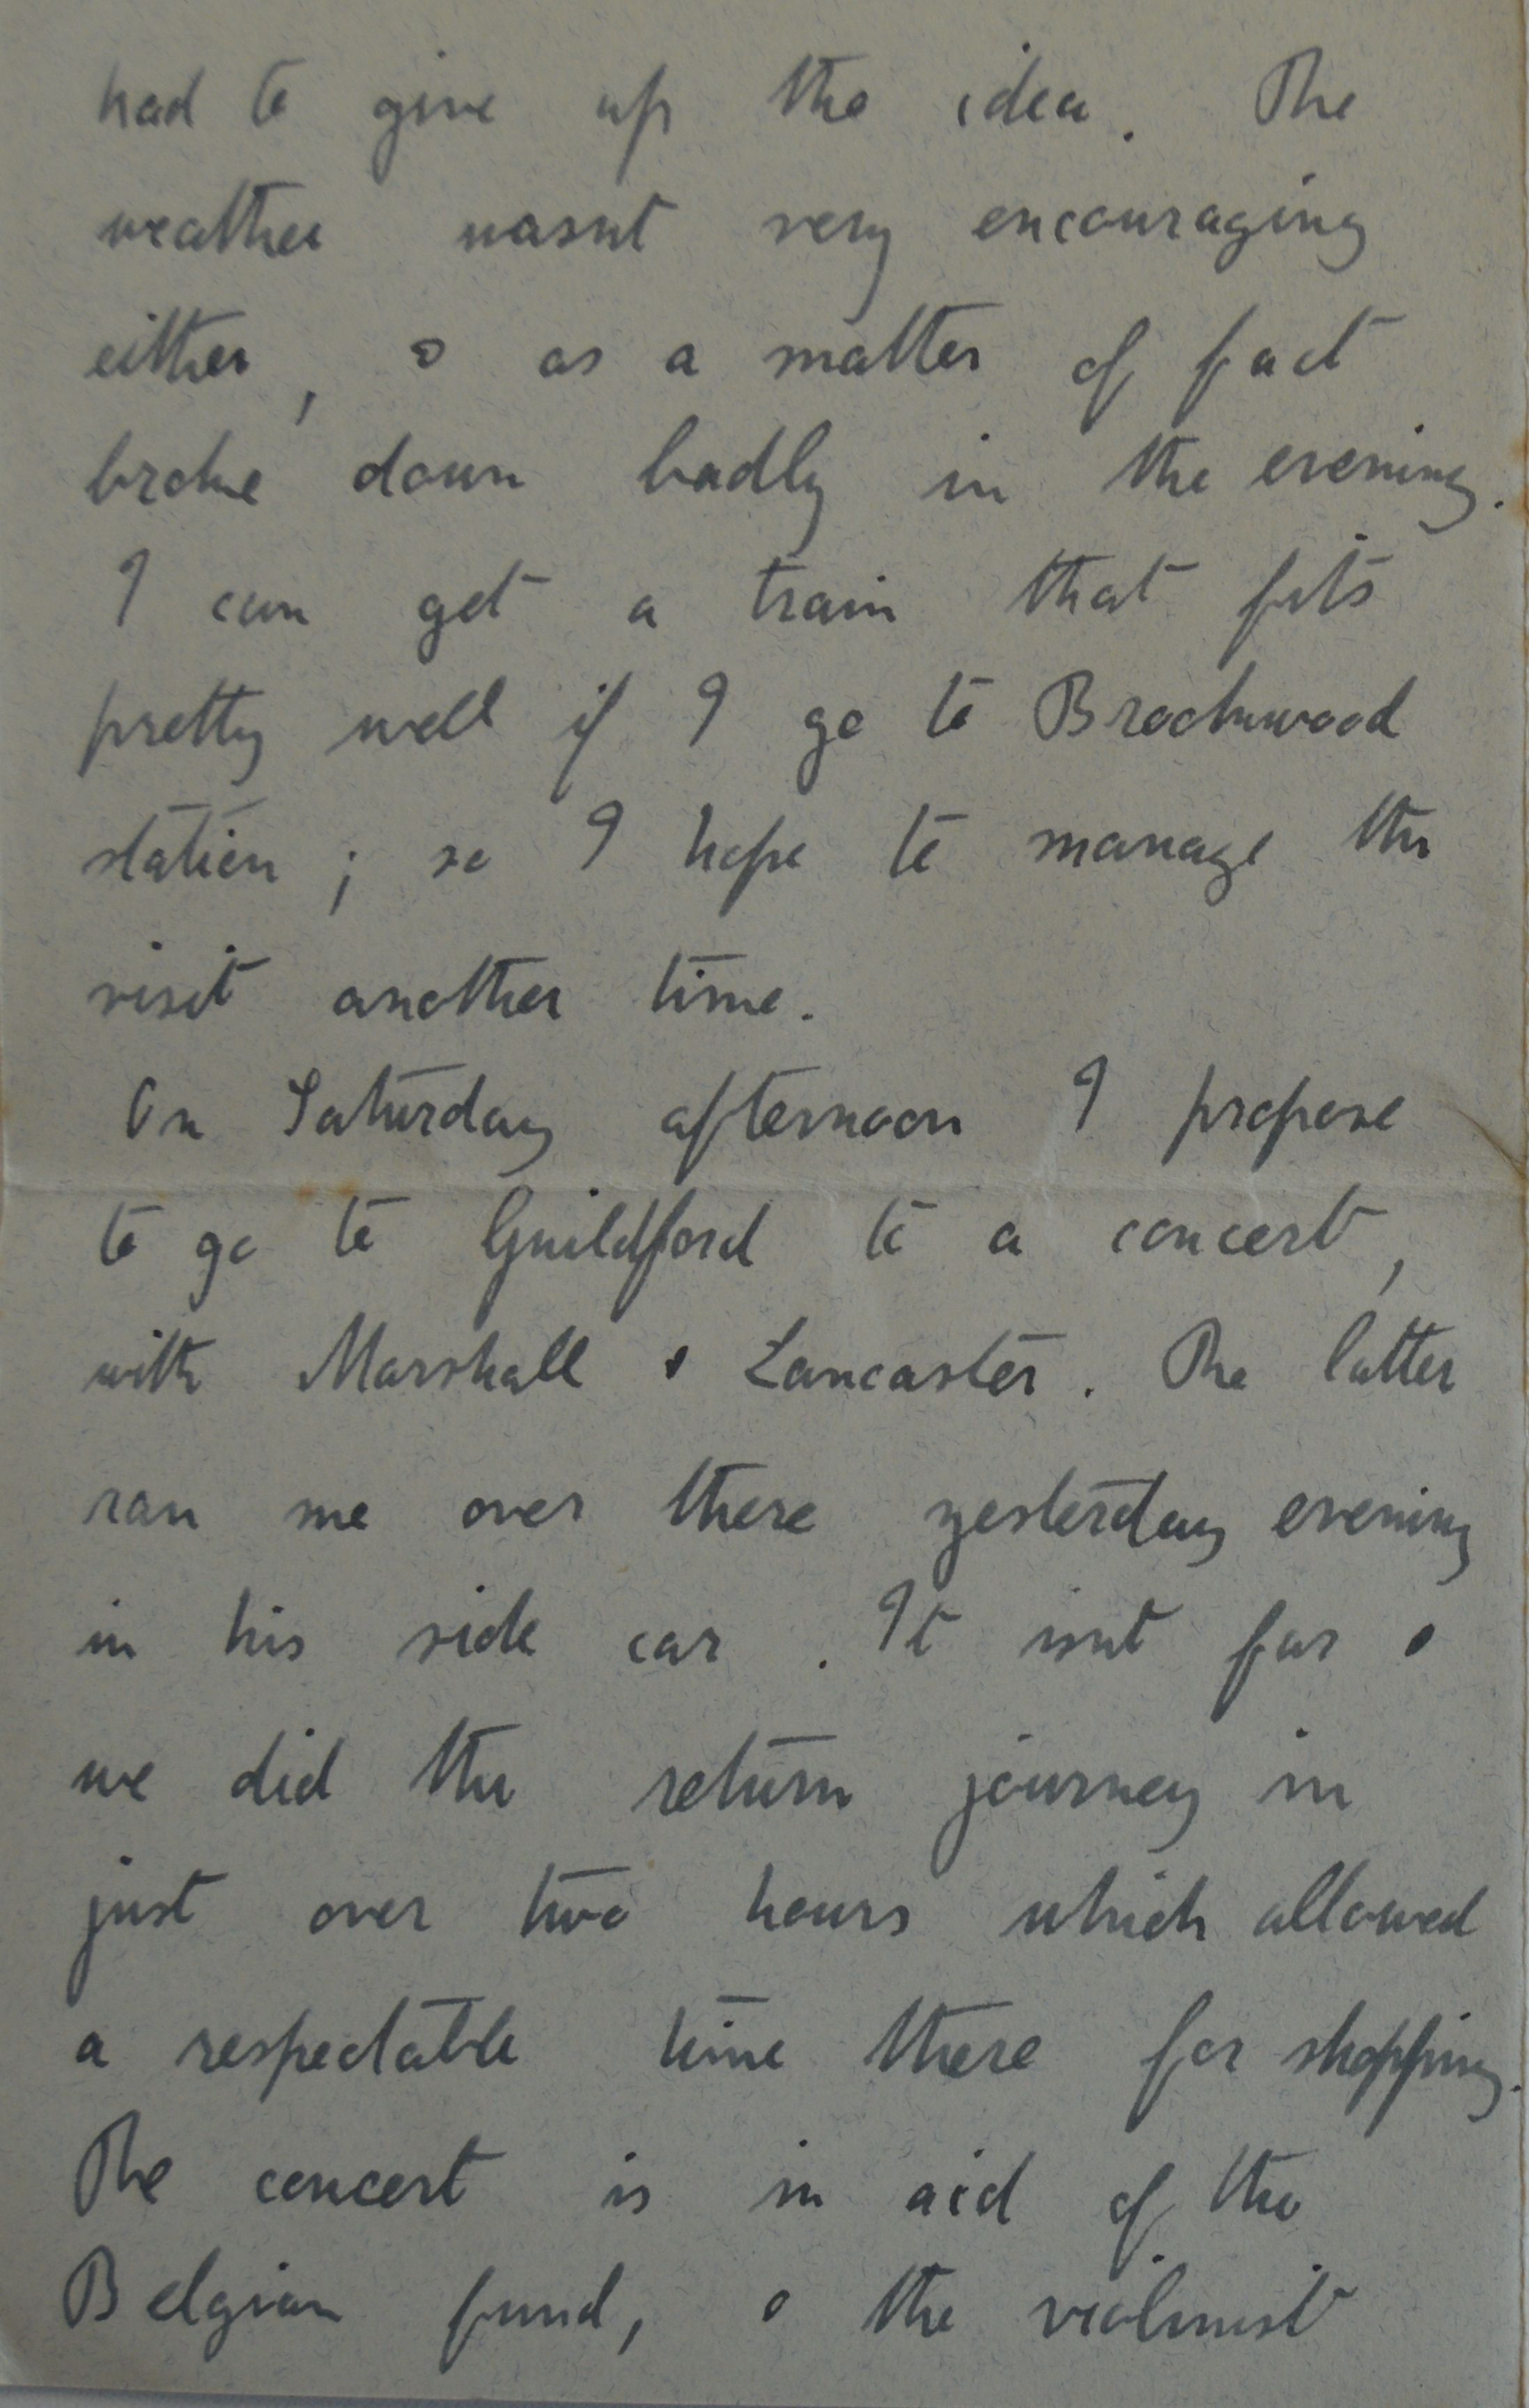 had to give up the idea. The
weather wasnt very encouraging
either, & as a matter of fact
broke down badly in the evening.
I can get a train that fits
pretty well if I go to Brookwood
station; so I hope to manage the
visit another time.
On Saturday afternoon I propose
to go to Guildford to a concert,
with Marshall & Lancaster. The latter
ran me over there yesterday evening
in his side car. It isnt far &
we did the return journey in
just over two hours which allowed
a respectable time there for shopping.
The concert is in aid of the
Belgian fund, & the violinist